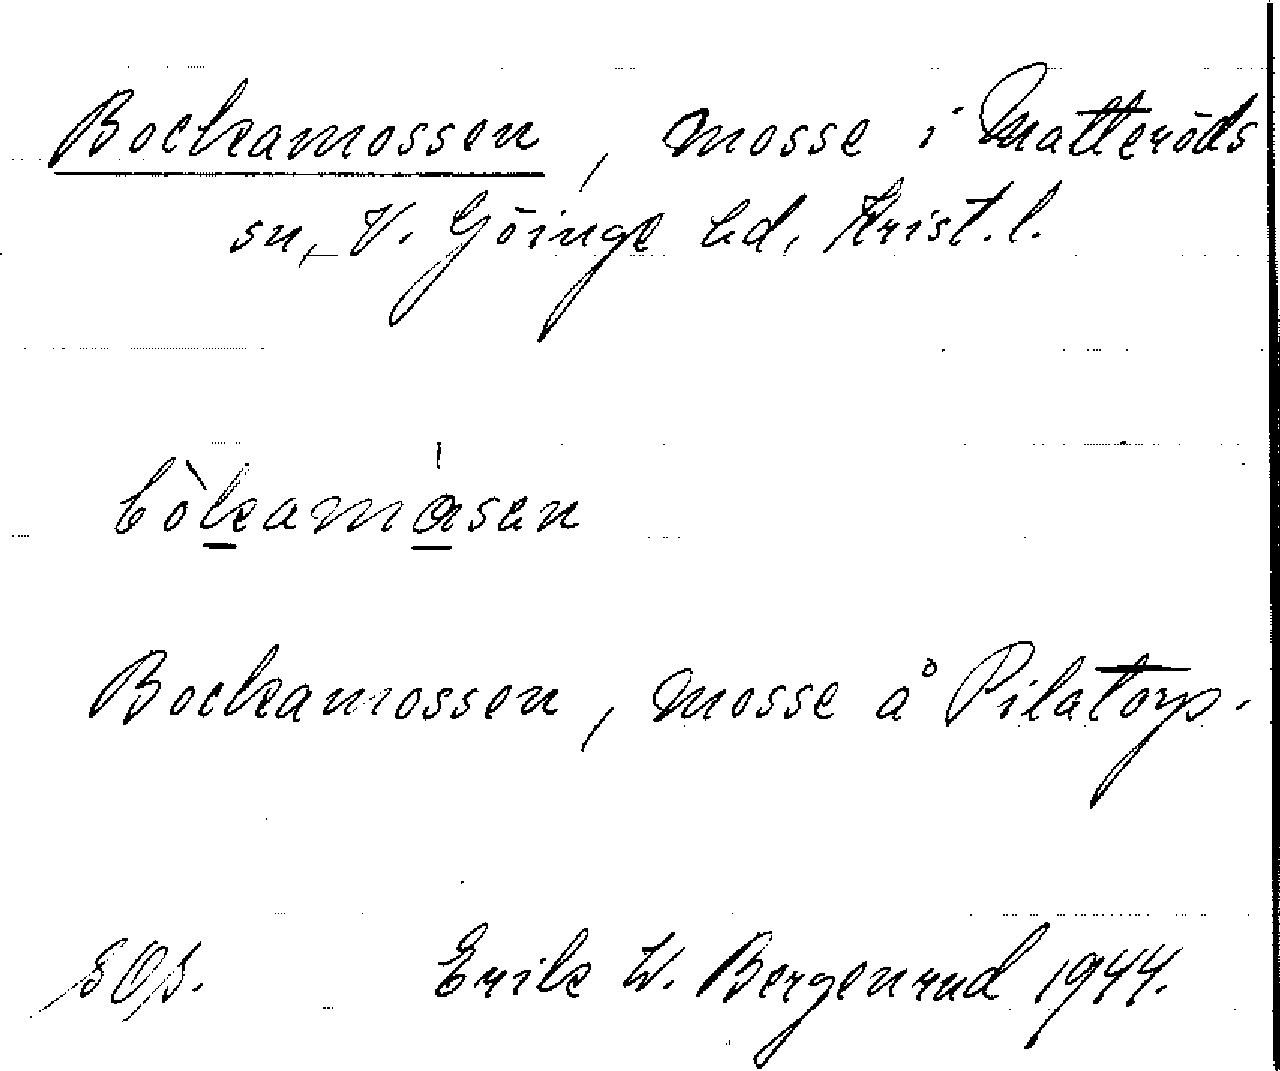 Bockamossen, mosse i Matteröds
sn, V. Göinge hd, Krist. l.
bòkamåsen
Bockamossen, mosse å Pilatorp.
Erik W. Bergenrud 1944.